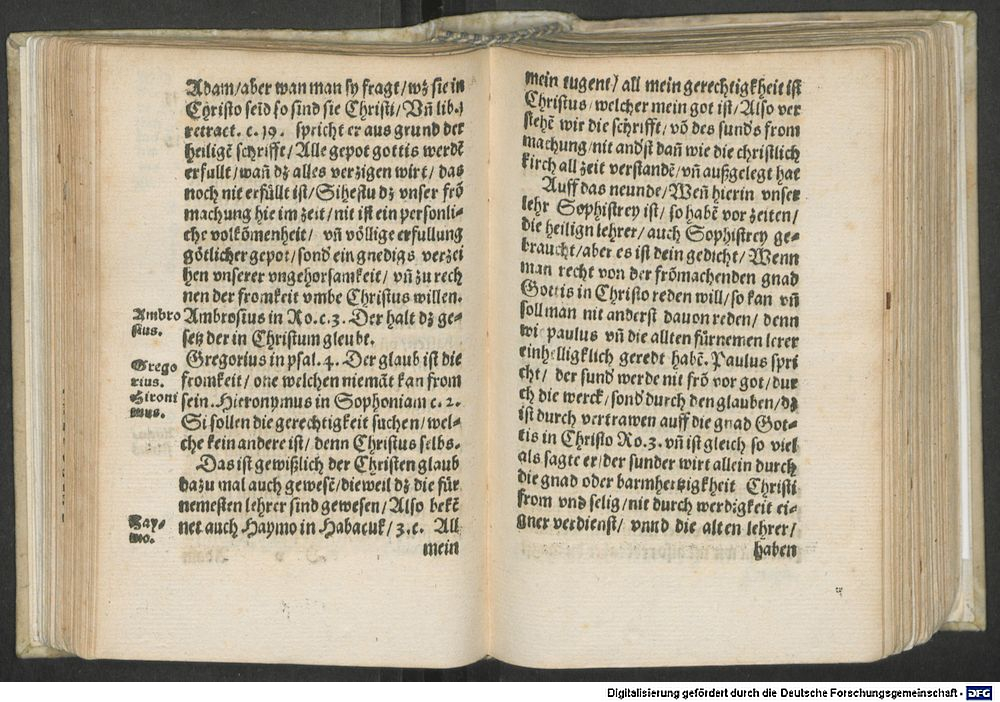 Adam/aber wan man sy fragt/wz sie in
Christo seid so sind sie Christi/Vñ lib.1
retract. c.19. spricht er aus grund der
heiligẽ schrifft/Alle gepot gottis werdẽ
erfullt/wañ dz alles verzigen wirt/das
noch nit erfüllt ist/Sihestu dz vnser frõ
machung hie im zeit/nit ist ein personli-
che volkõmenheit/ vñ völlige erfullung
götlicher gepot/sond ein gnedigs verzei
hen vnserer vngehorsamkeit/vñ zu rech
nen der fromkeit vmbe Christus willen.
Ambro
sius.
Ambrosius in Ro.c.3. Der halt dz ge-
setz der in Christum gleubt.
Grego
rius.
Gregorius in psal.4. Der glaub ist die
fromkeit/one welchen niemãt kan from
Hironi
mus.
sein. Hieronymus in Sophoniam c.2.
Si sollen die gerechtigkeit suchen/wel-
che kein andere ist/denn Christus selbs.
Das ist gewißlich der Christen glaub
dazu mal auch gewesẽ/dieweil dz die für
nemesten lehrer sind gewesen/Also bekẽ
Hay-
mo.
net auch Haymo in Habacuk/3.c. All
mein
mein tugent/ all mein gerechtigkheit ist
Christus/welcher mein got ist/Also ver
stehẽ wir die schrifft/võ des sunds from
machung/nit andst dañ wie die christlich
kirch all zeit verstandẽ/vñ außgelegt hat
Auff das neunde/Weñ hierin vnser
lehr Sophistrey ist/so habẽ vor zeiten/
die heilign lehrer/auch Sophistrey ge-
braucht/aber es ist dein gedicht/Wenn
man recht von der frömachenden gnad
Gottis in Christo reden will/so kan vñ
soll man nit anderst dauon reden/denn
wi paulus vñ die allten fürnemen lerer
einhelligklich geredt habẽ. Paulus spri
cht/ der sund werde nit frõ vor got/dur
ch die werck/sond durch den glauben/dz
ist durch vertrawen auff die gnad Got-
tis in Christo Ro.3. vñ ist gleich so viel
als sagte er/der sunder wirt allein durch
die gnad oder barmhertzigkheit Christi
from vnd selig/nit durch werdzigkeit ei-
gner verdienst/ vnnd die alten lehrer/
haben
Digitalisierung gefördert durch die Deutsche Forschungsgemeinschaft - DFG